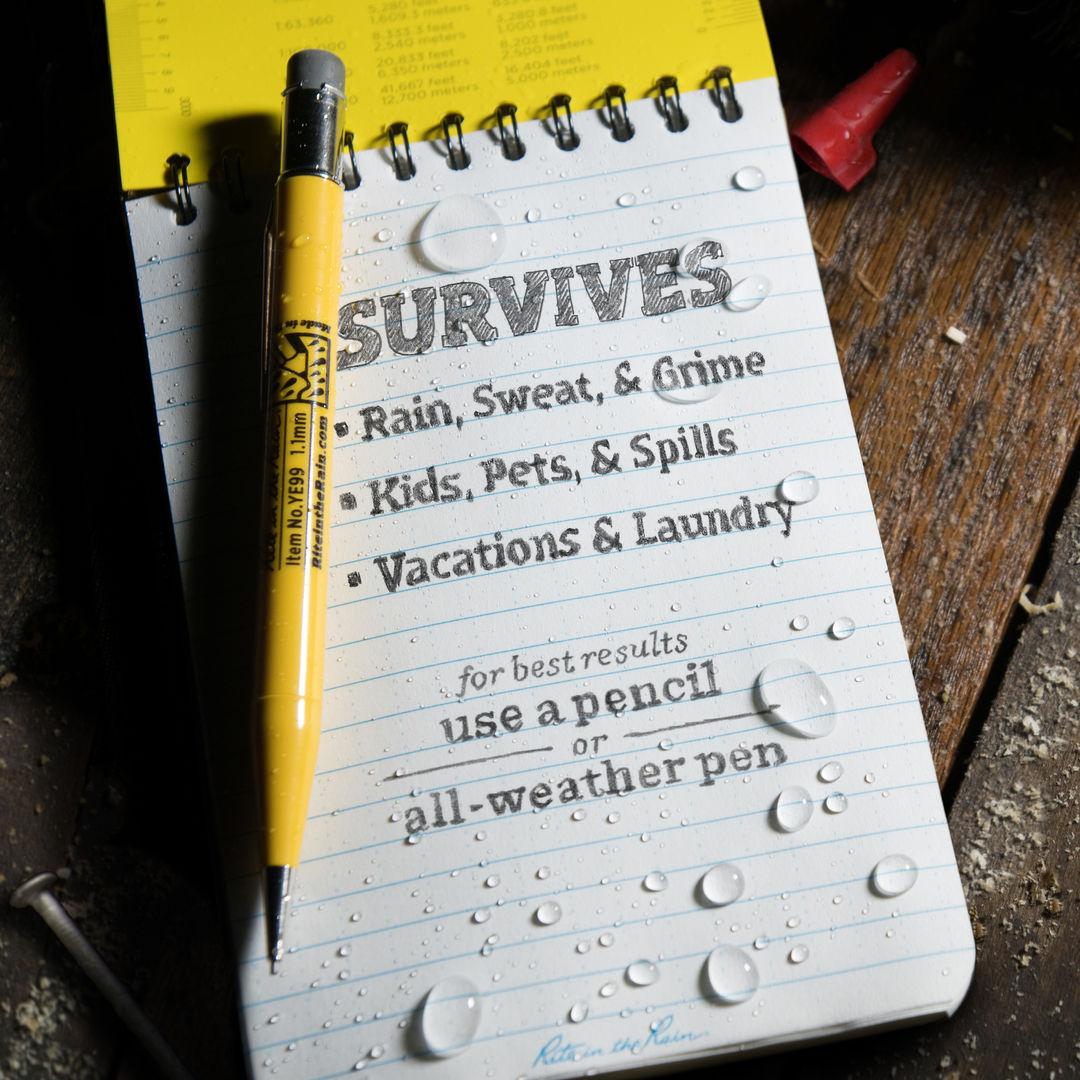 1:63,360
5,280 feet
1,609.3 meters
8,333.3 feet
2,540 meters
3,280.8 feet
1,000 meters
20,833 feet
6,350 meters
8,202 feet
2,500 meters
41,667 feet
12,700 meters
16,404 feet
5,000 meters
3000
SURVIVES
• Rain, Sweat, & Grime
• Kids, Pets, & Spills
• Vacations & Laundry
for best results
use a pencil
or
all-weather pen
Rite in the Rain
Made in
Item No.YE99 1.1mm
RiteintheRain.com